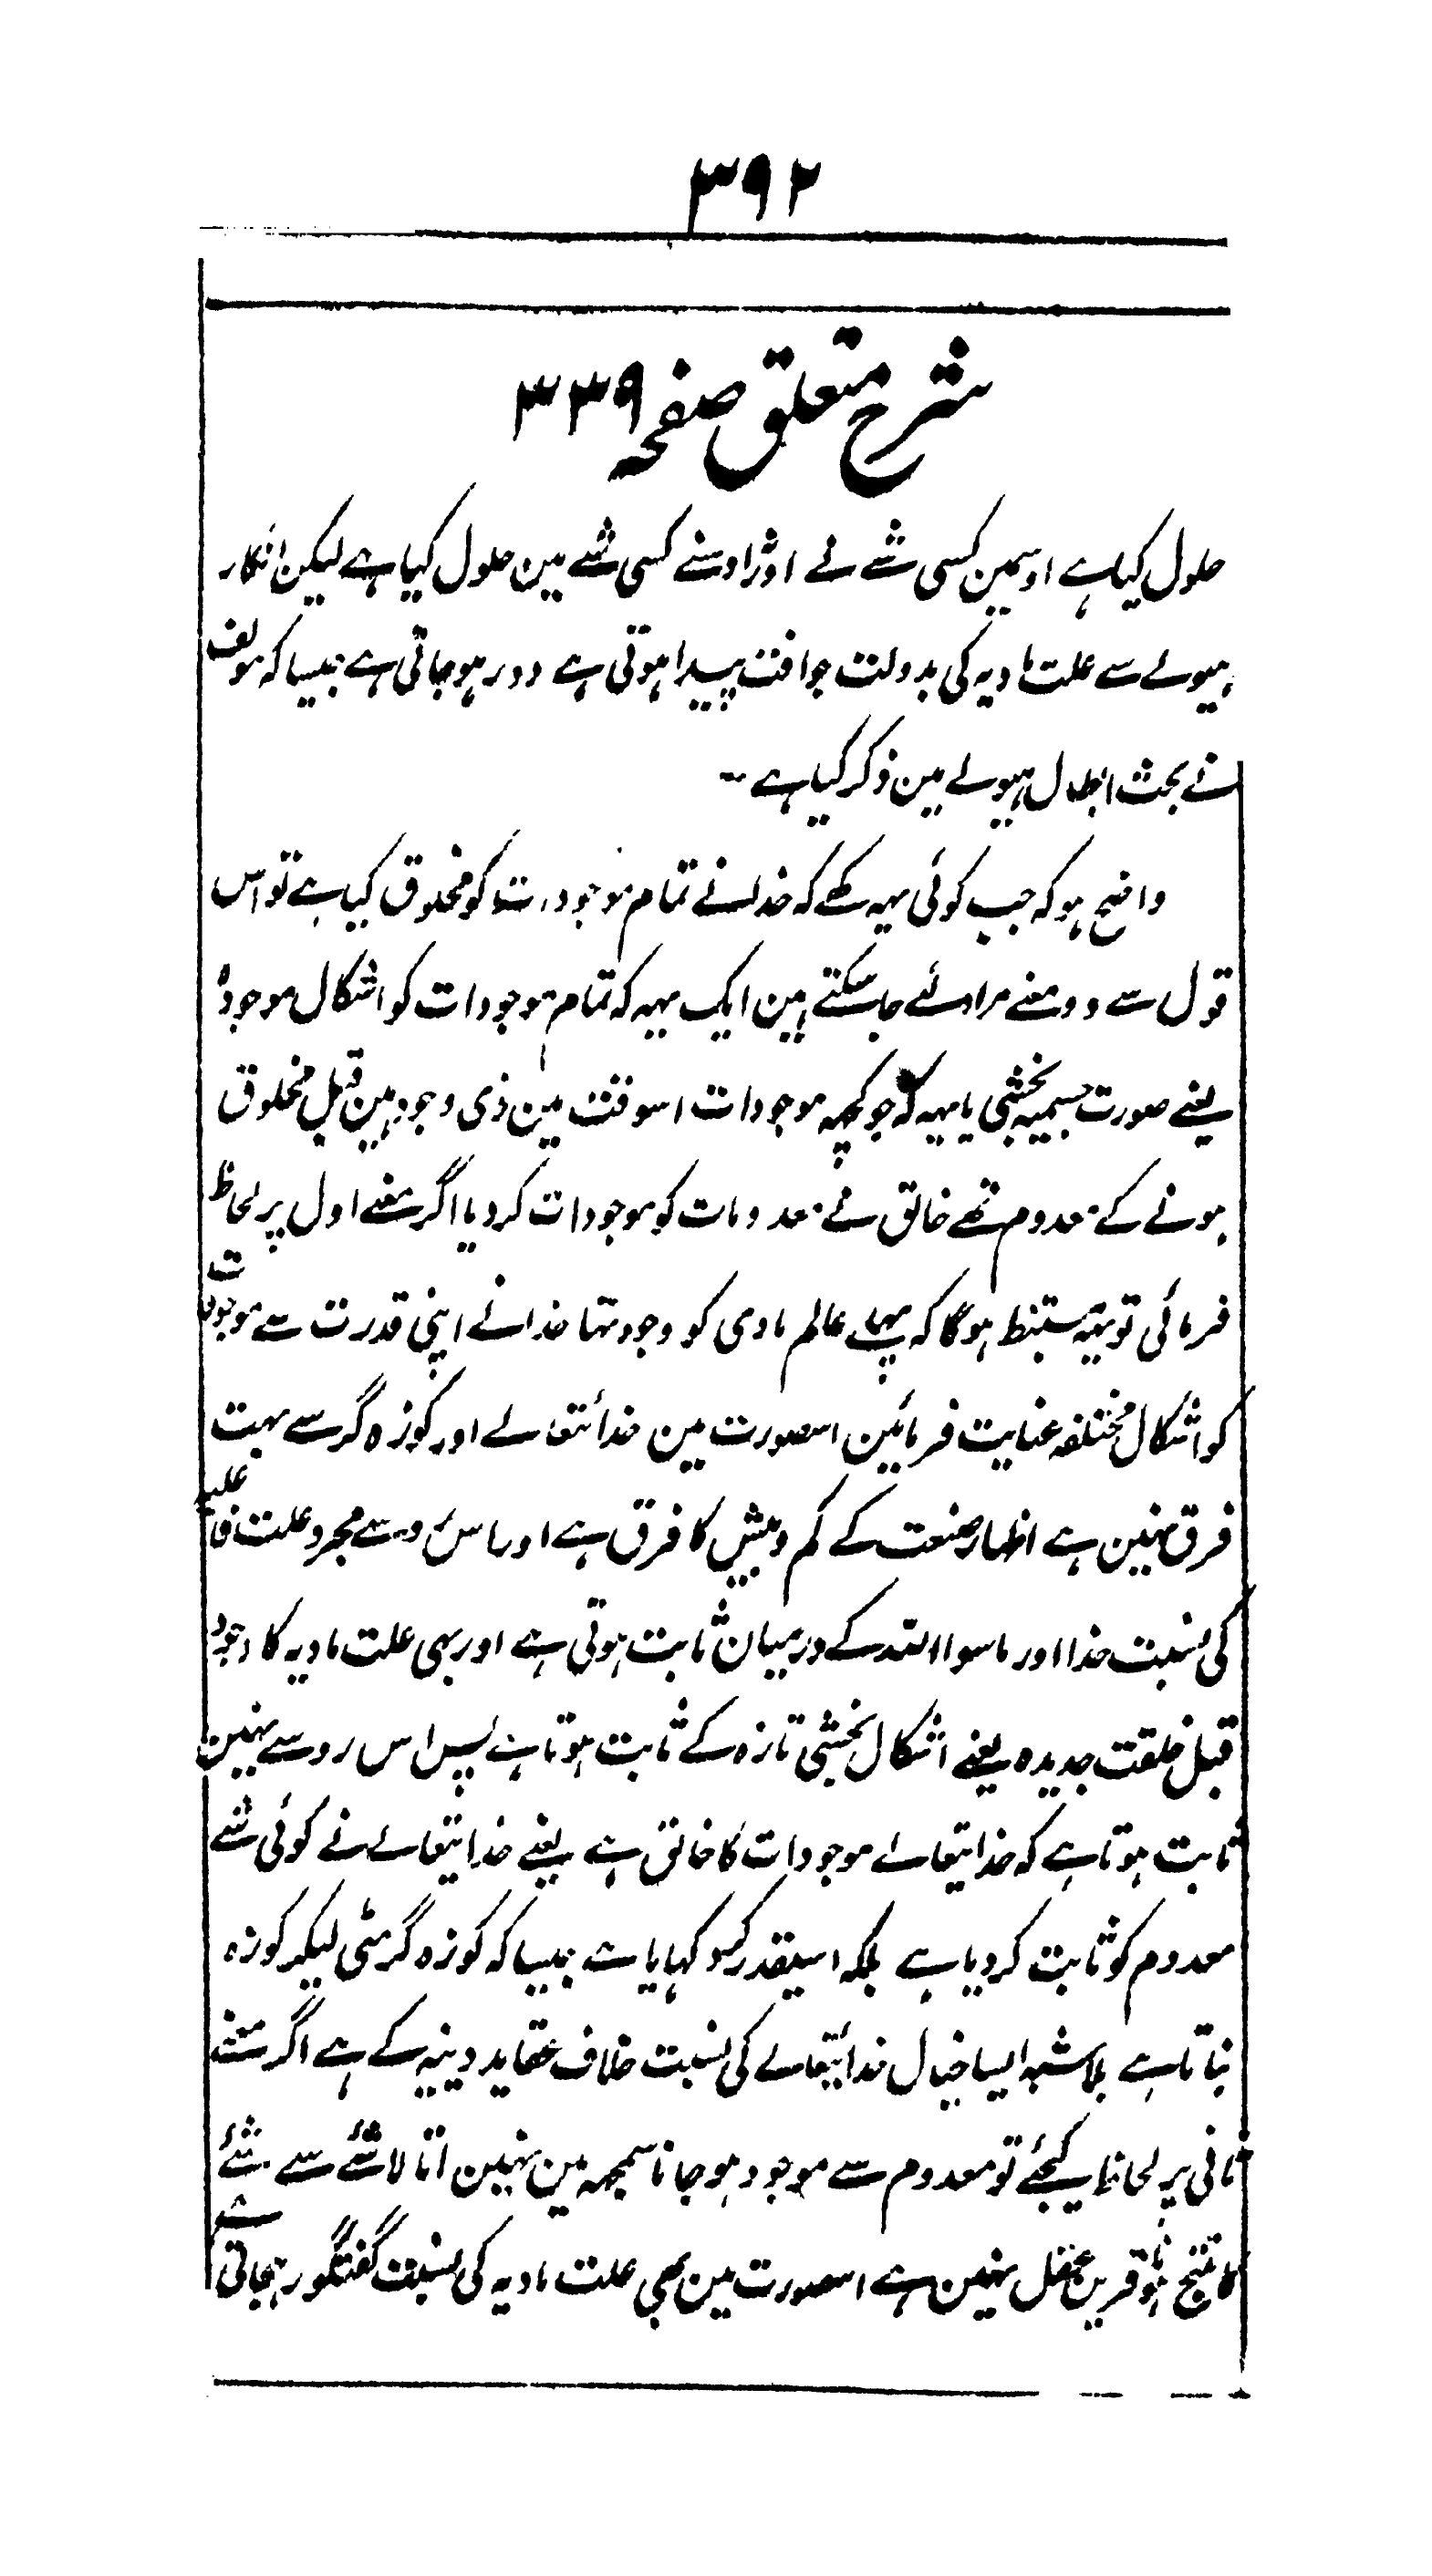 ۳۹۲
شرح متعلق صفحہ ۳۳۹
حلول کیا ہے اوسمین کسی شے نے اور نہ اوسنے کسی شے مین حلول کیا ہے لیکن انکار
ہیولے سے علت مادیہ کی بدولت جو افت پیدا ہوتی ہے دور ہو جاتی ہے جیسا کہ مولف
نے بحث ابطال ہیولے مین ذکر کیا ہے ۔
واضح ہو کہ جب کوئی یہہ کہے کہ خدا نے تمام موجودات کو مخلوق کیا ہے تو اس
قول سے دو معنے مراد لئے جا سکتے ہین ایک یہہ کہ تمام موجودات کو اشکال موجودہ
یعنے صورت جسمیہ بخشی یا یہہ کہ جو کچہہ موجودات اسوقت مین ذی وجود ہین قبل مخلوق
ہونے کے معدوم تھے خالق نے معدومات کو موجودات کر دیا اگر معنے اول پر لحاظ
فرمائی تو یہہ مستنبط ہوگا کہ پہلے عالم مادی کو وجود تہا خدا نے اپنی قدرت سے موجودات
کو اشکال مختلفہ عنایت فرمائین اسصورت مین خدائتعالے اور کوزہ گر سے بہت
فرق نہین ہے اظہار صنعت کے کم و بیش کا فرق ہے اور اس رو سے مجرد علت فاعلیہ
کی نسبت خدا اور ماسوا اللہ کے درمیان ثابت ہوتی ہے اور بہی علت مادیہ کا وجود
قبل خلقت جدیدہ یعنے اشکال بخشی تازہ کے ثابت ہوتا ہے پس اس رو سے نہین
ثابت ہوتا ہے کہ خدا یتعالے موجودات کا خالق ہے یعنے خدا یتعالے نے کوئی شے
معدوم کو ثابت کر دیا ہے بلکہ اسیقدر کر دکہایا ہے جیسا کہ کوزہ گر مٹی لیکر کوزہ
بناتا ہے بلا شبہ ایسا خیال خدائیتعالے کی نسبت خلاف عقاید دینیہ کے ہے اگر معنے
ثانی پر لحاظ کیجئے تو معدوم سے موجود ہو جانا سمجہہ مین نہین اتا لا شئے سے شئے
کا منتج ہونا قرین عقل نہین ہے اسصورت مین بھی علت مادیہ کی نسبت گفتگو رہجاتی ہے